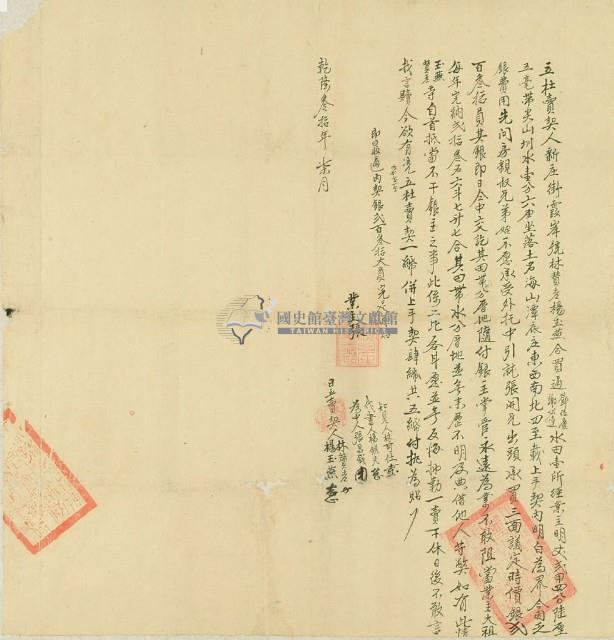 立杜賣契人新庄街霞岸號林贊老楊玉燕合買過鄧仍慶謝岱達水田壹所經業主明丈弍甲四分陸厘
五毫帶尖山圳水壹分六坐落土名海山潭底庄東西南北四至載上手契內明白為界今因乏
銀費用先問房親叔兄弟姪不愿承受外托中引就張開兄出頭承買三面議定時價銀弍
百叁拾員其銀即日仝中交訖其田帶水分厝地隨付銀主掌管永遠為業不敢阻當業主大租
每年完納弍拾叁石六斗七升七合其田帶水分厝地並無來歷不明及典借他人等弊如有此情
玉燕贊老等自首抵當不干銀主之事此係二比各甘愿並無反悔抑勒一賣千休日後不敢言
找言贖今欲有憑立杜賣契一紙併上手契肆紙共五紙付執為照
即日收過內契銀弍百叁拾大員完足
乾隆叁拾年 柒月
業主張
知見人林
代書人楊
為中人張
日立賣契人林贊老
楊玉燕
國史館臺灣文獻館
TAIWAN HISTORICA